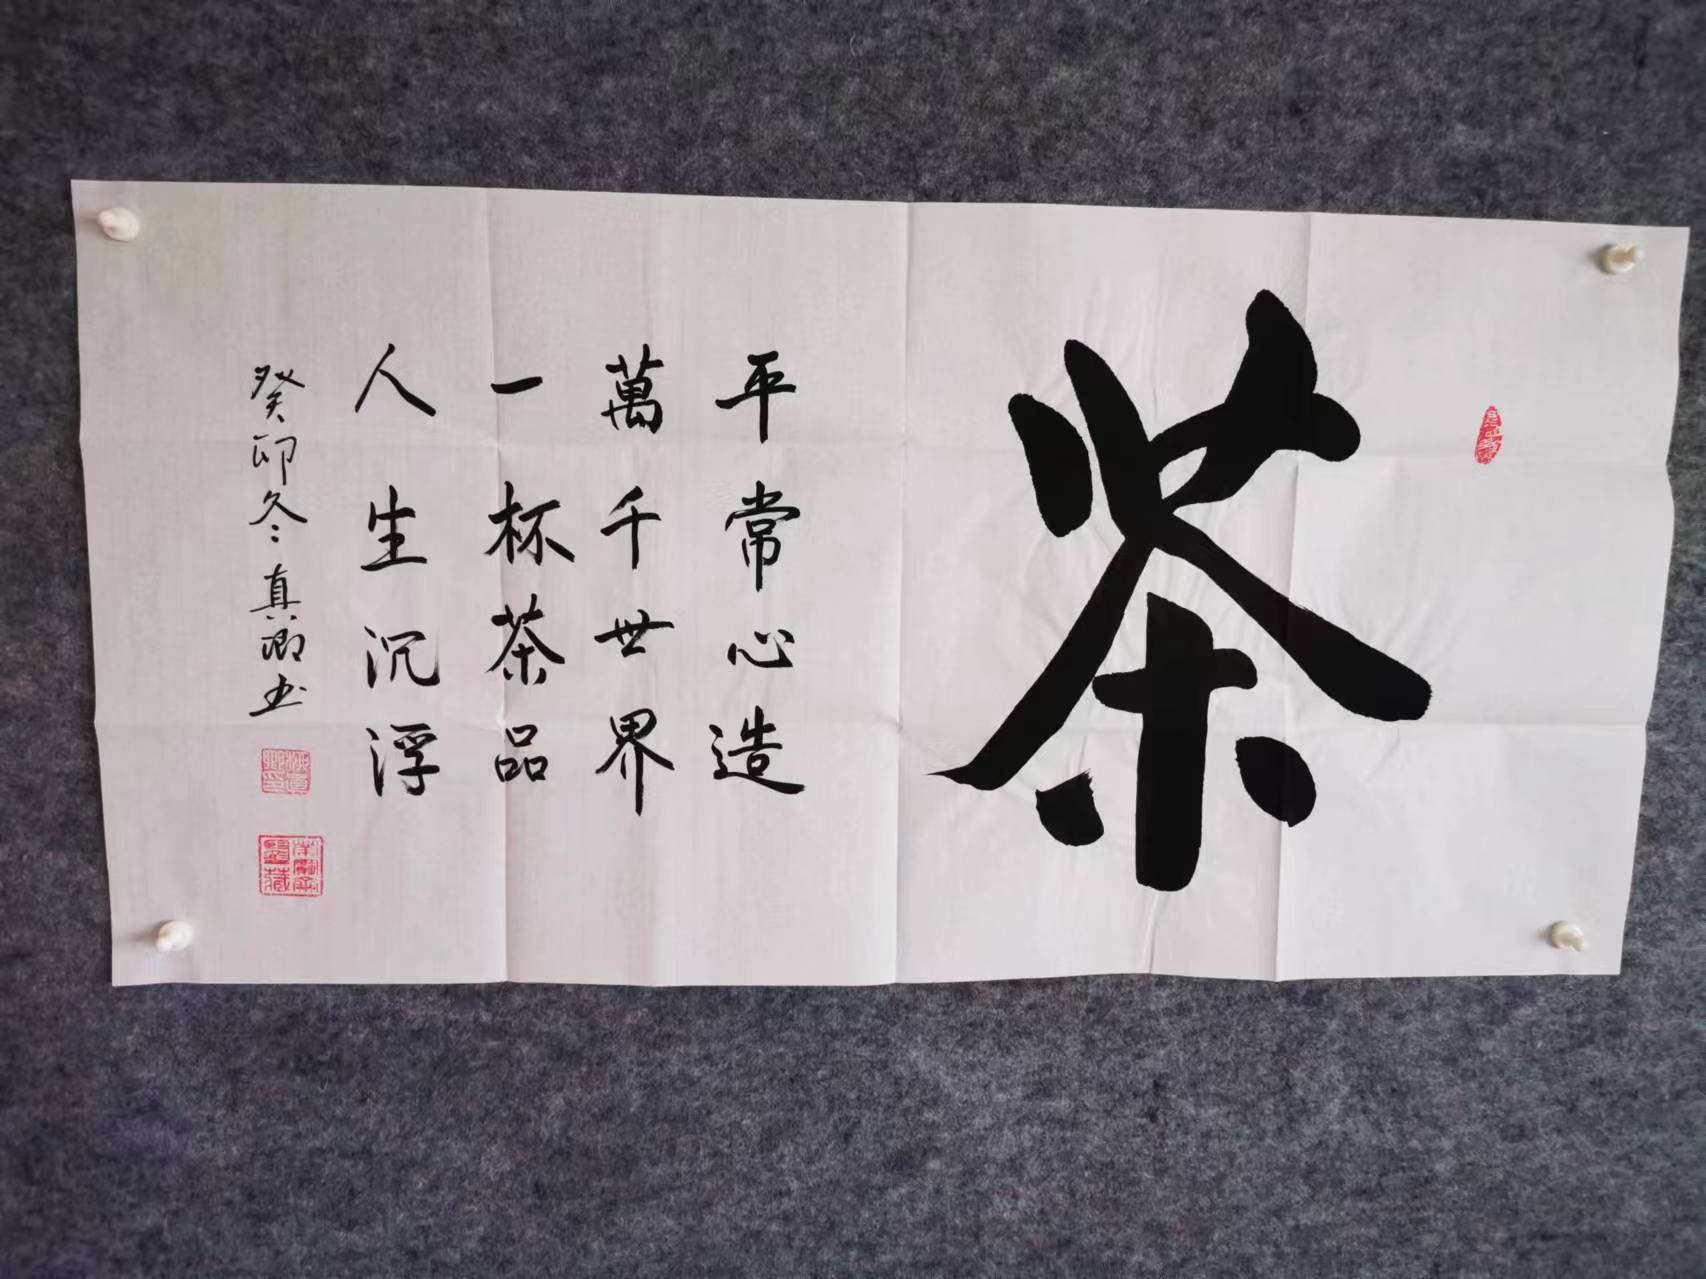 茶
平常心造
萬千世界
一杯茶品
人生沉浮
癸卯冬真卿书